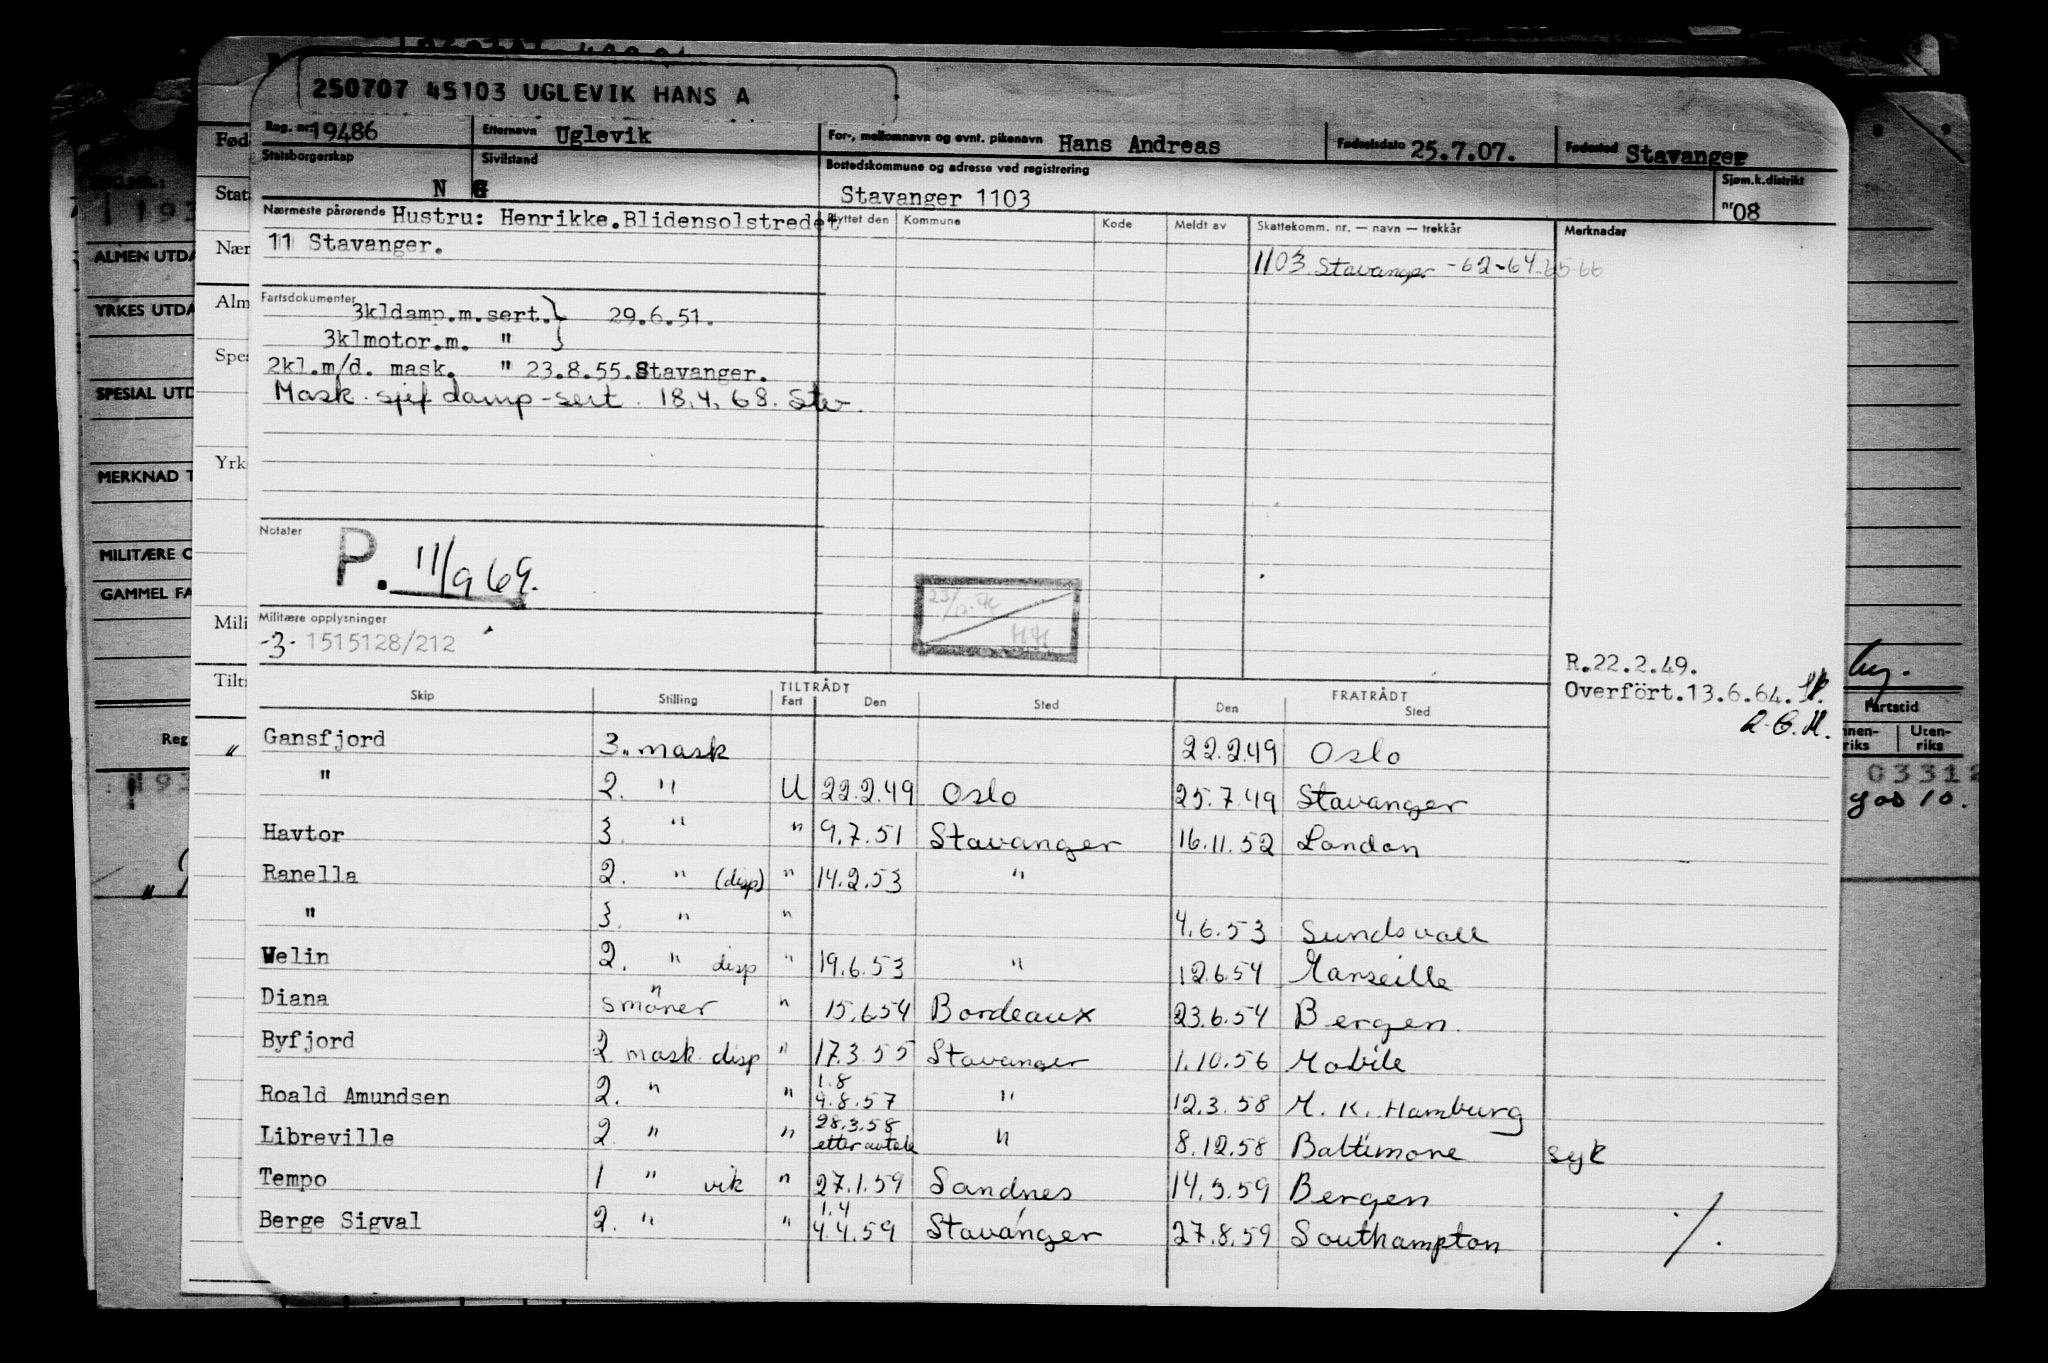 250707 45103 UGLEVIK HANS A
Reg. nr. 19486 Etternavn Uglevik For-, mellomnavn og evnt. pikenavn Hans Andreas Fødselsdato 25.7.07. Fødested Stavanger
Statsborgerskap N Sivilstand G Bostedskommune og adresse ved registrering Stavanger 1103 Sjøm.k.distrikt nr 08
Nærmeste pårørende Hustru: Henrikke.Blidensolstredet
11 Stavanger.
Flyttet den Kommune Kode Meldt av Skattekomm. nr. — navn — trekkår Merknader
1103 Stavanger -62-64-65-66
Fartsdokumenter
3kldamp.m.sert.} 29.6.51.
3klmotor.m. " }
2kl.m/d. mask. " 23.8.55.Stavanger.
Mask. sjef damp-sert. 18.4.68. Stv.
Notater
P. 11/9 69.
Militære opplysninger
-3- 1515128/212
HH
R.22.2.49.
Overfört.13.6.64.
Skip Stilling TILTRÅDT Fart Den Sted FRATRÅDT Den Sted
Gansfjord 3. mask 22.2.49 Oslo
" 2. " U 22.2.49 Oslo 25.7.49 Stavanger
Havtor 3. " " 9.7.51 Stavanger 16.11.52 London
Ranella 2. " (disp) " 14.2.53 "
" 3. " " 4.6.53 Sundsvall
Welin 2. " disp " 19.6.53 " 12.6.54 Marseille
Diana smörer " " 15.6.54 Bordeaux 23.6.54 Bergen.
Byfjord 2 mask disp " 17.3.55 Stavanger 1.10.56 Mobile
Roald Amundsen 2. " " 1.8 4.8.57 " 12.3.58 M. K. Hamburg
Libreville 2. " " 28.3.58 etter avtale " 8.12.58 Baltimore syk
Tempo 1 " vik " 27.1.59 Sandnes 14.3.59 Bergen
Berge Sigval 2. " " 1.4 4.4.59 Stavanger 27.8.59 Southampton
·/.
Fød
Stat
Nær
Alm
Spes
Yrk
Mili
Tilt
Reg
ALMEN UTDA
YRKES UTDA
SPESIAL UTD
MERKNAD T
MILITÆRE O
GAMMEL FA
Fartstid
Innen-riks Uten-riks
03312